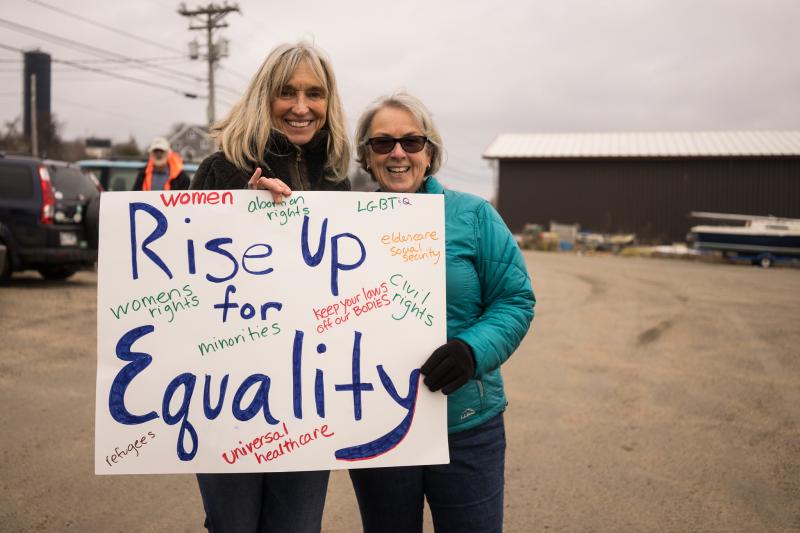 women
abortion
rights
LGBTiQ
Rise Up
eldercare
social
security
womens
rights
for
keep your laws
off our BODIES
Civil
rights
minorities
Equality
refugees
universal
healthcare